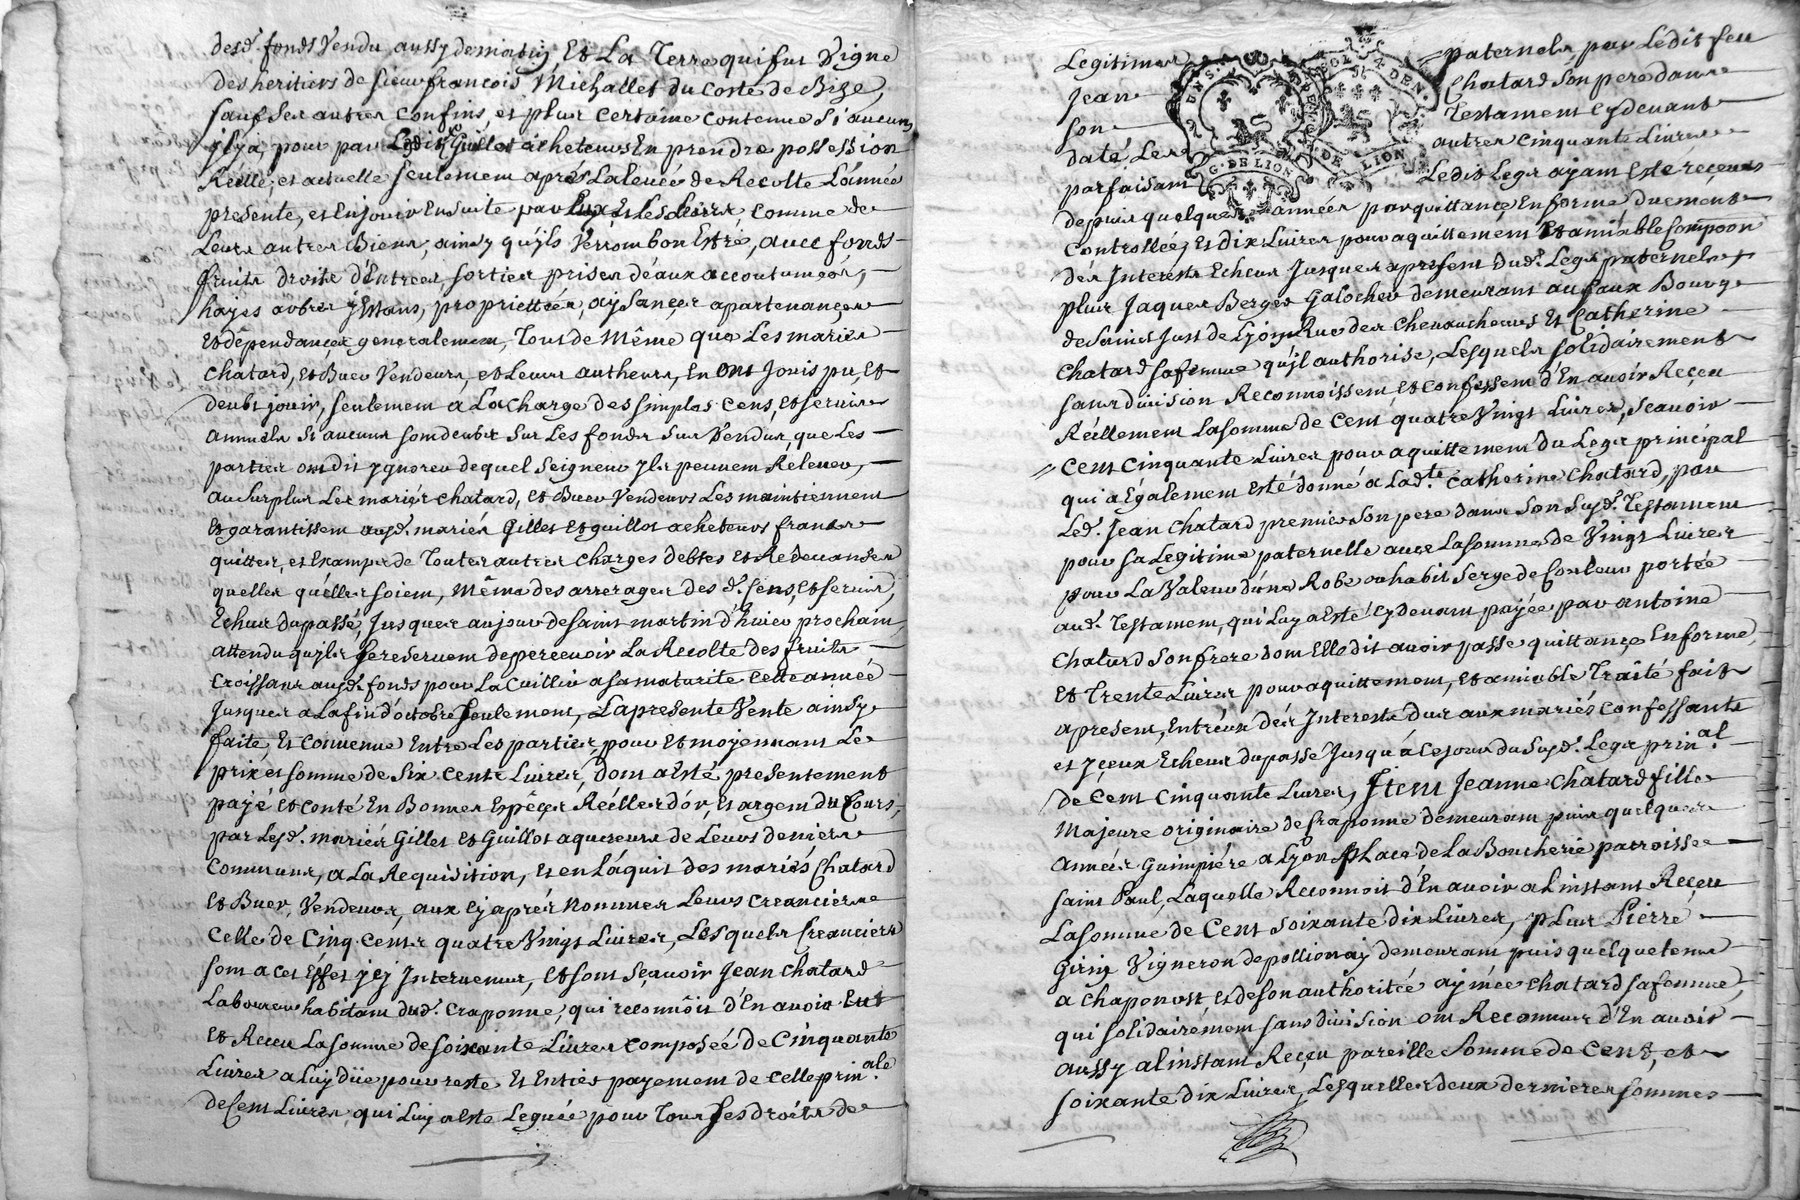 desd. fonds Vendu aussy de matin, Et La Terre qui fut Vigne
des heritiers de sieur francois Michallet du costé de Bize,
sauf ses autres confins, et plus certaine contenue Si aucuns
jl y a, pour par Ledit Guillot acheteurs En prendre possession
Réelle, et actuelle seulement aprés La levée de Recolte L'année
presente, et En jouir Ensuite par Eux Et Les Leurs, comme de
Leurs autres Biens, ainsy qu'jls Verront bon Estre, avec fonds
fruits droits d'Entrées, sorties prises d'eaux accoutumées,
hayes arbres y Estans, propriettées, aysançes apartenançes
Et dépendançes generalement, Tout de Même que Les mariés
Chatard, et Buer Vendeurs, et Leurs autheurs, En ont Jouis pu, Et
deubt jouir, seulement a La charge des simples Cens, et servis
annuels si aucuns sont deubts sur Les fonds sus Vendus, que Les
parties ont dit ygnorer de quel Seigneur yls peuvent Réléver,
au surplus Les mariés Chatard, et Buer Vendeurs Les maintiennent
Et garantissent ausd. mariés Gillet et Guillot acheteurs francs
quittes, et Exampts de Toutes autres Charges debtes et Redevances
quelles quélles soient, Même des arrerages des d. Cens, et servis,
Echeus du passé, Jusques au jour de saint martin d'hiver prochain,
attendu qu'jls se reservent de percevoir La Recolte des fruits
croissans ausd. fonds pour La Cuillir a sa maturité cette année
Jusques a La fin d'octobre seulement, La presente Vente ainsy
faite, Et Convenue Entre Les parties, pour Et moyennant Le
prix et somme de Six Cents Livres, dont a Esté presentement
payé et Conté En Bonnes Espéçes Réélles d'or, et argent du Cours,
par Lesd. mariés Gillet et Guillot aquereurs de Leurs deniers
Communs, a La Requisition, et en L'áquit des mariés Chatard
et Buer, Vendeurs, aux cy aprés nommés Leurs creanciers
Celle de Cinq Cents quatre Vingt Livres, Lesquels Creanciers
sont a cet Effet jcy Intervenus, et sont Sçavoir Jean Chatard
Laboureur habitant dud. Craponne, qui reconnoit d'En avoir Eut
et Reçeu La somme de soixante Livres composée de Cinquante
Livres a Luy düe pour reste Et Entier payement de celle prin.ale
de Cent Livres, qui Luy a Esté Leguée pour Tous Ses droits de
Legitimes paternels par Ledit feu
Jean Chatard son pere dans
son Testament cy devant
daté Les autres cinquante Livres
parfaisant Ledit Legs ayant Esté receues
depuis quelques années par quittance En forme duement
Controllée, Et dix Livres pour aquittement Et amiable Compoon
des Interests Echeus Jusques a present dud. Legs paternel,
plus Jaques Berger Galocher demeurant au faux Bourg
de Saint Just de Lyon Rue des Chevaucheurs Et Catherine
Chatard sa femme qu'jl authorise, Lesquels solidairement
sans division Reconnoissent, et confessent d'En avoir Reçeu
Réellement La somme de Cent quatre Vingt Livres, Scavoir
Cent Cinquante Livres pour aquittement du Legs principal
qui a Également Esté donné a Lad.te Catherine Chatard, par
Led. Jean Chatard premier Son pere dans Son susd. Testament
pour sa Legitime paternelle avec La somme de Vingt Livres
pour La Valeur d'une Robe ou habit Serge de Couleur portée
aud. Testament, qui Luy a Esté Cy devant payée par antoine
Chatard Son frere dont Elle dit avoir passé quittançe En forme,
et Trente Livres pour aquittement, et amiable Traité fait
a present, Entréux dés Interests dus aux mariés confessants
et yçeux Echeus du passé Jusqu'á ce jour du susd. Legs prin.al
de Cent Cinquante Livres, Jtem Jeanne Chatard fille
Majeure originaire de Craponne demeurant puis quelques
années Guimpiére a Lyon place de La Boucherie parroisse
saint Paul, Laquelle Reconnoit d'En avoir a L'instant Reçeu
La somme de Cent soixante dix Livres, plus Pierre
Girin Vigneron de pollionay demeurant puis quelque tems
a Chaponost et de son authoritéé aymée Chatard sa femme,
qui solidairement sans division ont Reconnus d'En avoir
aussy a L'instant Reçeu pareille Somme de Cent, et
soixante dix Livres, Lesquelles deux dernieres sommes